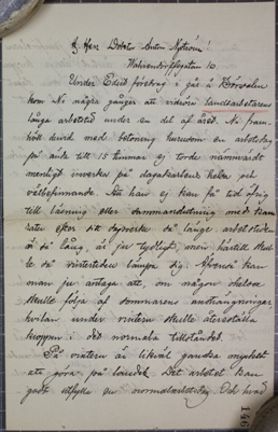 Hr. Herr Doktor Anton Nyström!
Wahrendorffsgatan 10.
Under Edert föredrag i går å Börssalen
kom Ni några gånger att vidröra landtarbetarens
långa arbetstid under en del af året. Ni fram-
höll dervid med betoning huruson en arbetsdag
på ända till 15 timmar ej torde nämnvärdt
menligt inverka på dagakarlens helsa och
välbefinnande. Att han ej kan få tid öfrig
till läsning eller sammandrutning med kam-
rater efter sitt dagsverke så länge arbetstiden
är så lång, är ju tydligt, men härtill skul-
le då vintertiden lämpa sig. Äfvenså kan
man ju antaga att, om någon ohelsa
skulle följa af sommarens ansträngningar,
hvilan under vintern skulle återställa
kroppen i det normala tillståndet.
På vintern är likväl ganska mycket
att göra på landet. Det arbetet kan
godt utfylla en normalarbetsdag. Och hvad
146